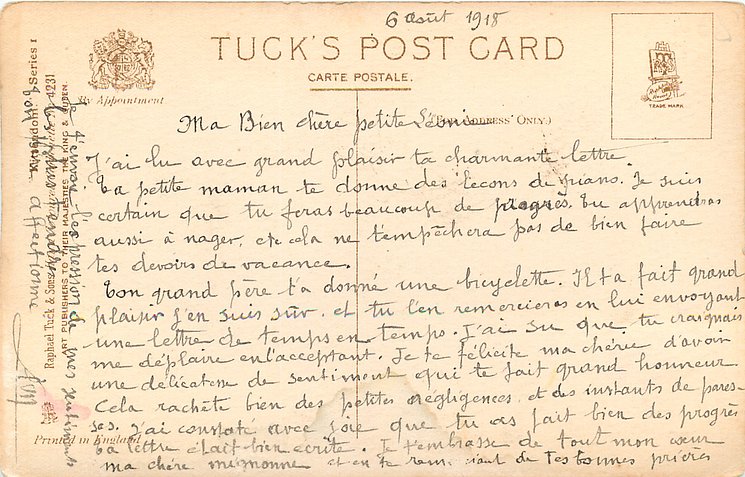 6 août 1918
TUCK'S POST CARD
CARTE POSTALE.
By Appointment
TRADE MARK
(THE ADDRESS ONLY.)
Ma Bien chère petite
J'ai lu avec grand plaisir ta charmante lettre.
Ta petite maman te donne des leçons de piano. Je suis
certain que tu feras beaucoup de progrès. Tu apprendras
aussi à nager, et cela ne t'empêchera pas de bien faire
tes devoirs de vacance.
Ton grand père t'a donné une bicyclette. Il t'a fait grand
plaisir j'en suis sûr. et tu l'en remercieras en lui envoyant
une lettre de temps en temps. J'ai su que tu craignais
me déplaire en l'acceptant. Je te félicite ma chérie d'avoir
une délicatesse de sentiment qui te fait grand honneur.
Cela rachète bien des petites négligences et des instants de pares-
ses. J'ai constaté avec joie que tu as fait bien des progrès
ta lettre était bien écrite. Je t'embrasse de tout mon cœur
ma chère mignonne et en te remerciant de tes bonnes prières
je t'envoie l'expression de mes sentiments
les plus tendres
Ton affectionné
Series 1
4231
Raphael Tuck & Sons
ART PUBLISHERS TO THEIR MAJESTIES THE KING & QUEEN.
Printed in England